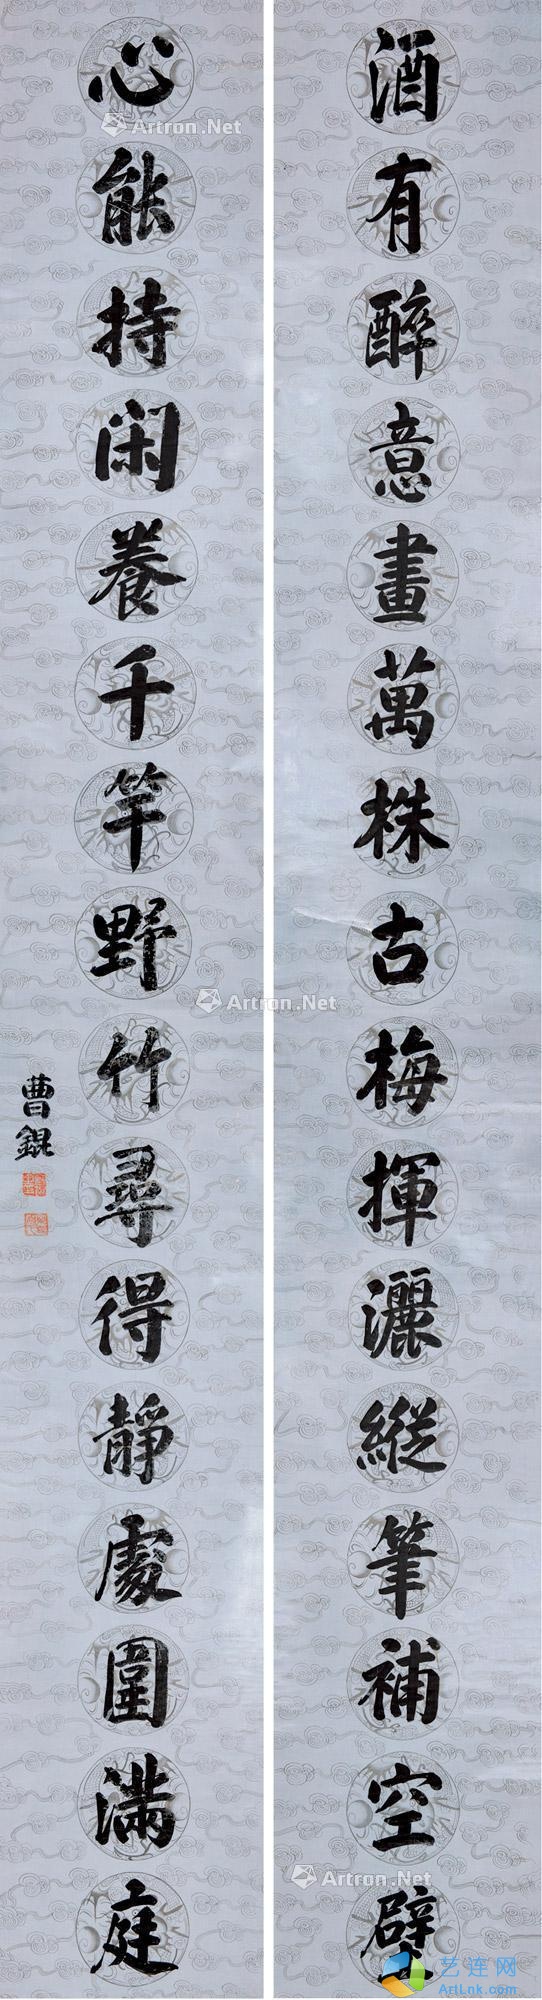 酒有醉意畫萬株古梅揮灑縱筆補空壁
心能持闲養千竿野竹尋得静處圍满庭
曹錕
Artron.Net
Artron.Net
Artron.Net
艺连网
ArtLnk.com